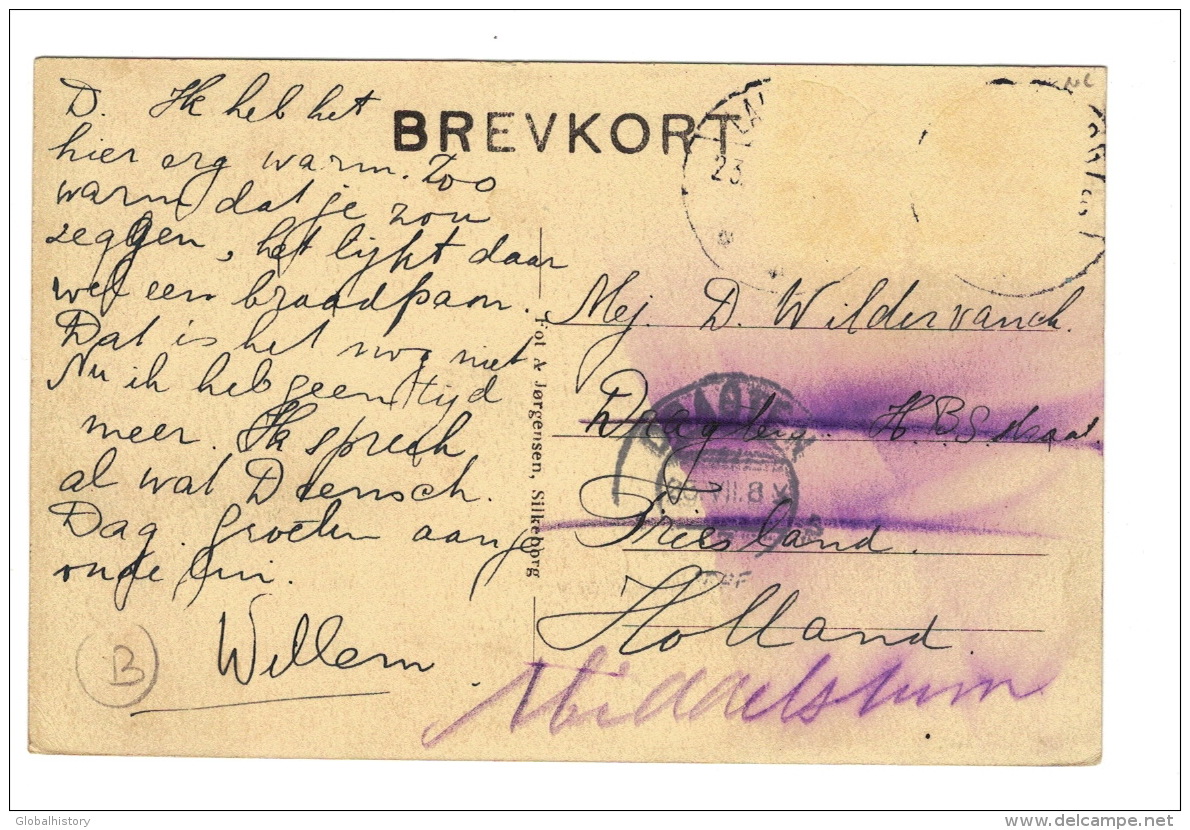 BREVKORT
D. Ik heb het
hier erg warm. Zoo
warm dat je zou
zeggen, het lijkt daar
wel een braadpam.
Dat is het nog niet
Nu ik heb geen tijd
meer. Ik spreek
al wat Deensch.
Dag. groeten aan je
oude lui.
Willem
B
Fot A Jørgensen, Silkeborg
23
NL
Mej. D. Wildervanck.
Dragten. H.B.S. straat
Friesland.
Holland.
Middelstum
DRAGTEN
Globalhistory
delcampe.net